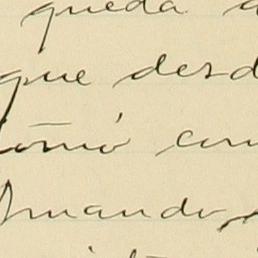 queda
que desd
tomó con
Amando,